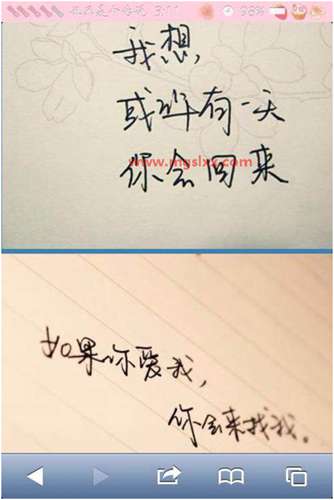 3:11
98%
我想,
或许有一天
www.mgslxx.com
你会回来
如果你爱我,
你会来找我。